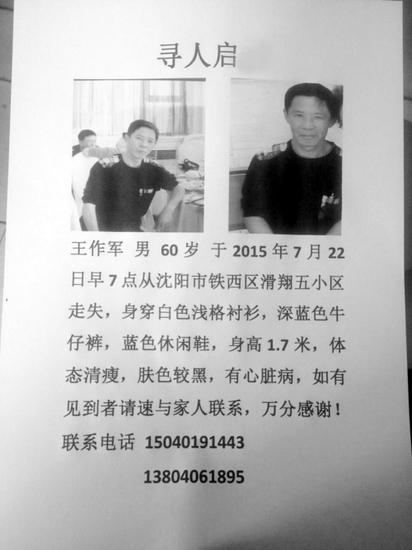 寻人启
王作军 男 60 岁 于 2015 年 7 月 22
日早 7 点从沈阳市铁西区滑翔五小区
走失，身穿白色浅格衬衫，深蓝色牛
仔裤，蓝色休闲鞋，身高 1.7 米，体
态清瘦，肤色较黑，有心脏病，如有
见到者请速与家人联系，万分感谢！
联系电话 15040191443
13804061895